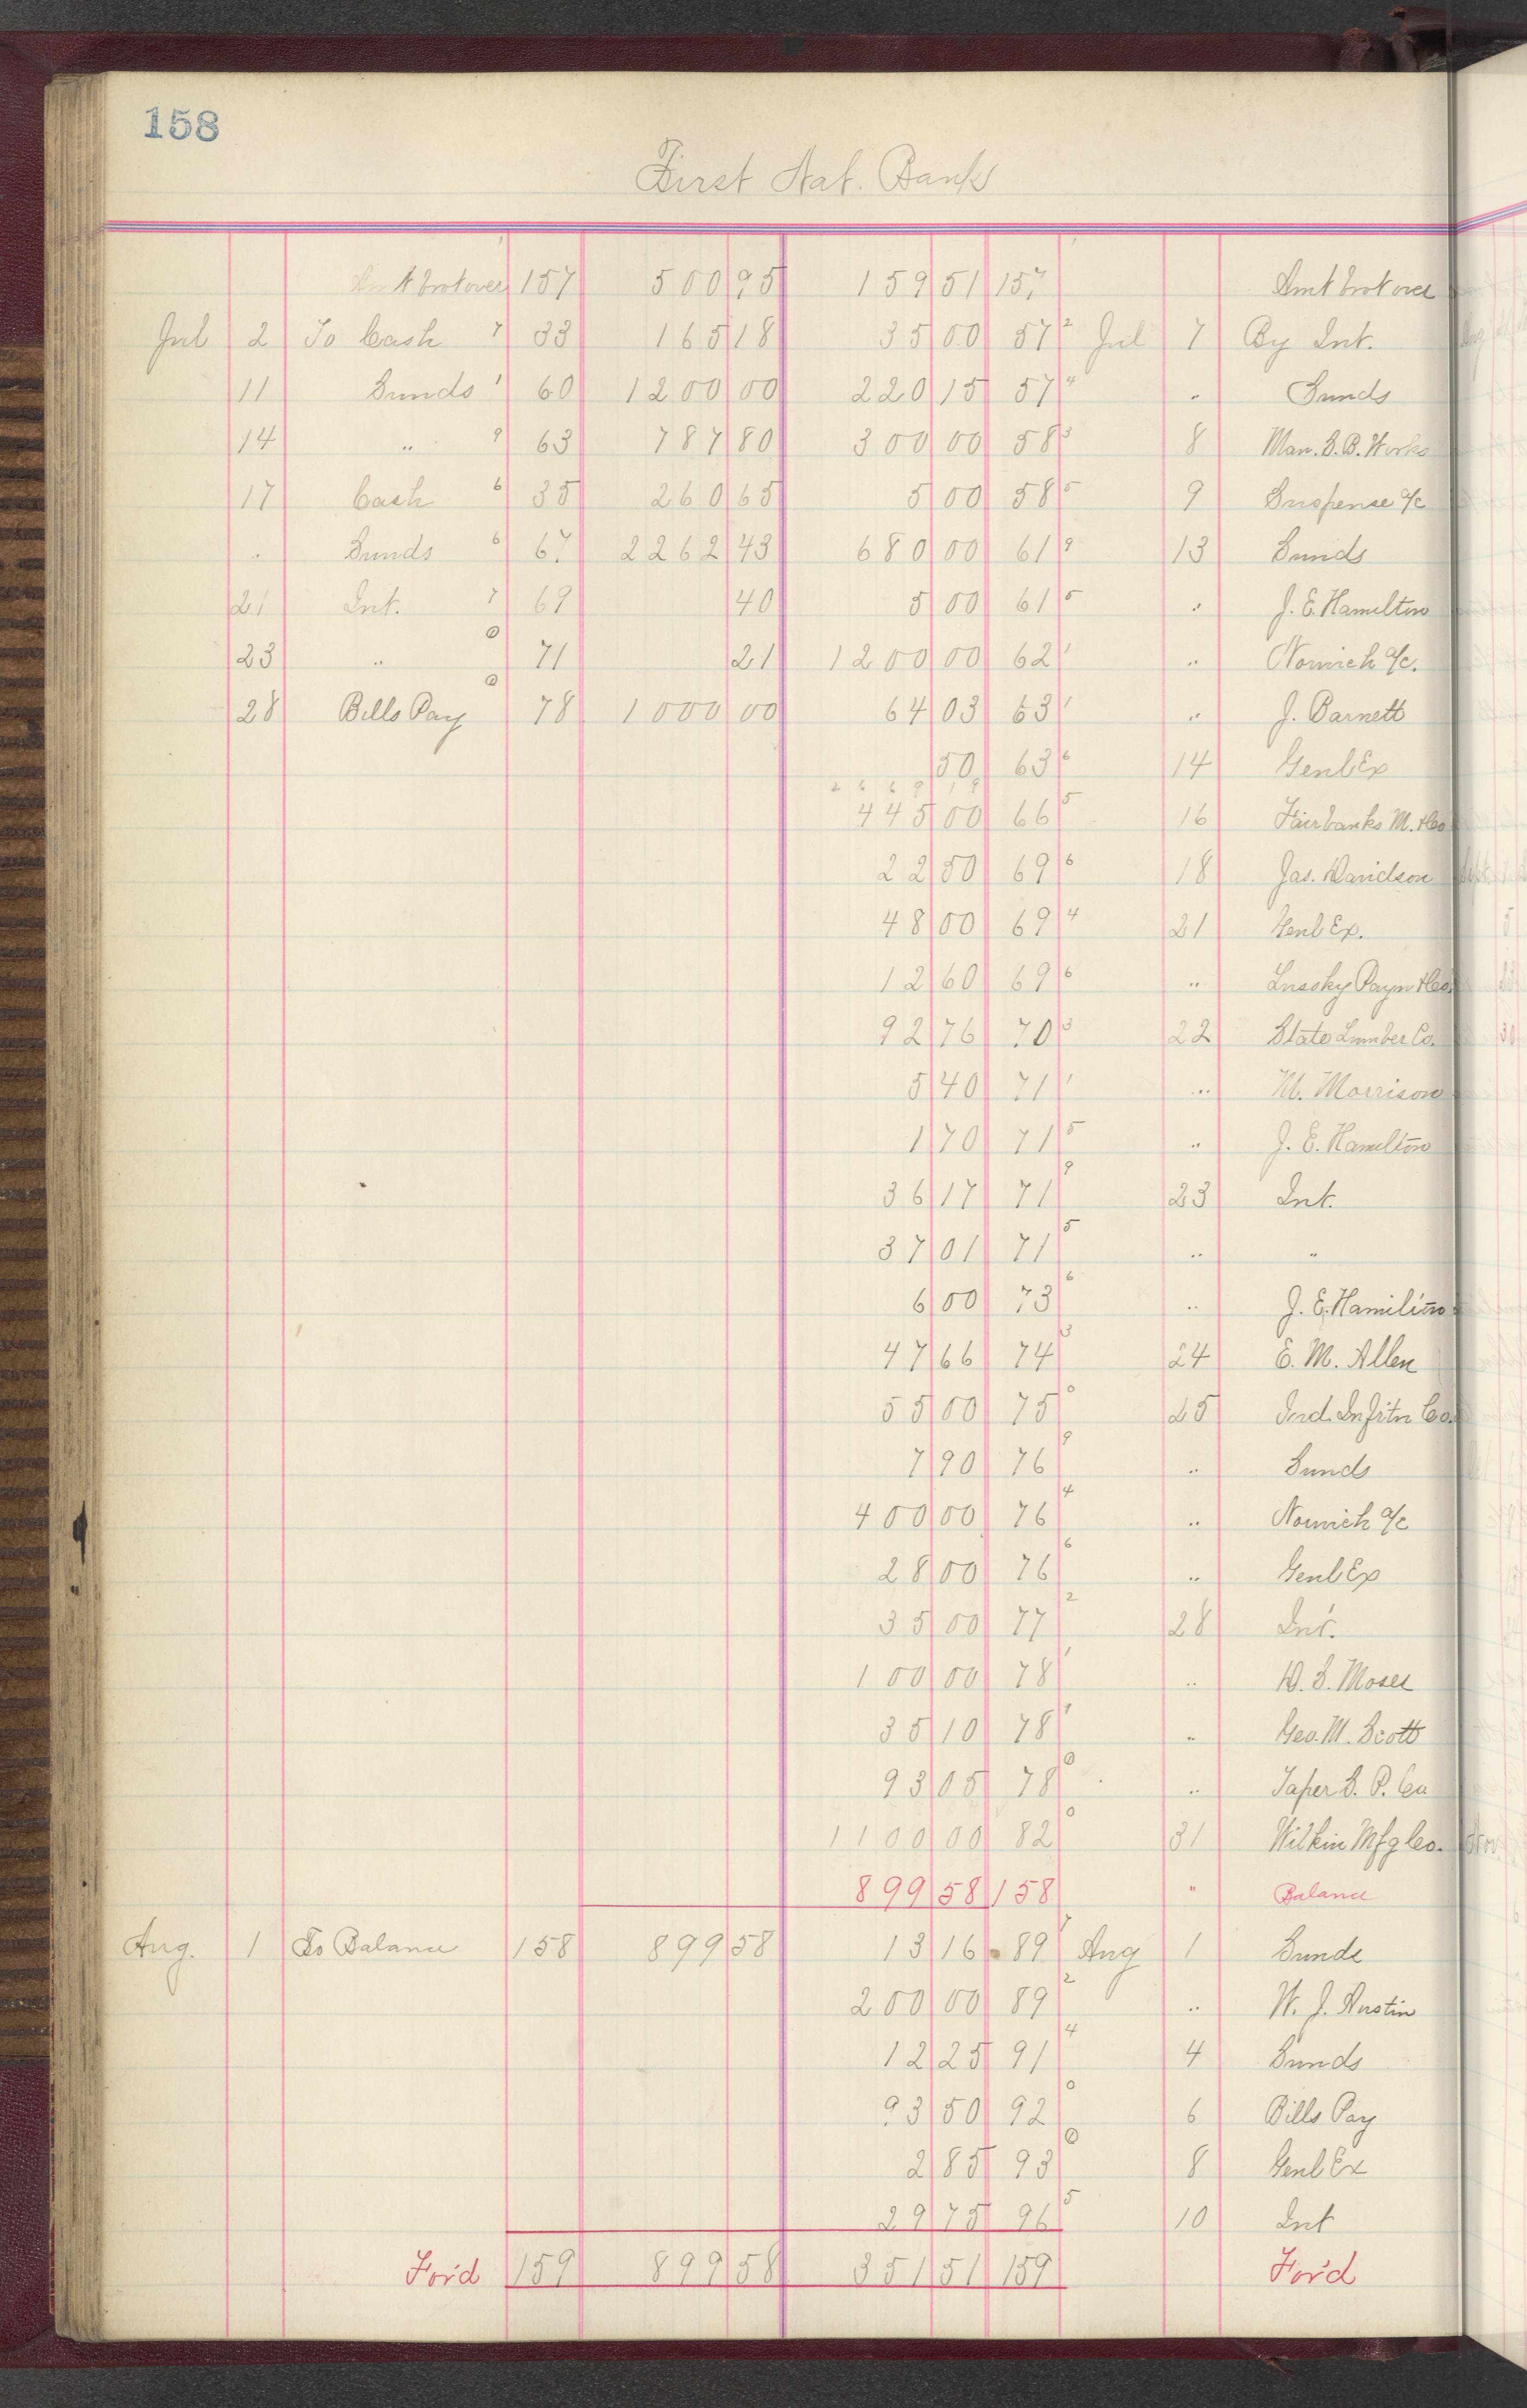 158
First Nat. Bank
Amt brot over 157 500 95 159 51 157 Amt brot over
Jul 2 To Cash 7 33 165 18 35 00 57 2 Jul 7 By Int.
11 Sunds 1 60 1200 00 220 15 57 4 " Sunds
14 " 9 63 787 80 300 00 58 3 8 Man. S. B. Works
17 Cash 6 35 260 65 5 00 58 5 9 Suspense a/c
" Sunds 6 67 2262 43 680 00 61 9 13 Sunds
21 Int. 7 69 40 5 00 61 5 " J. E. Hamilton
23 " 0 71 21 1200 00 62 1 " Norwich a/c.
28 Bills Pay 0 78 1000 00 64 03 63 1 " J. Barnett
50 63 6 14 Genl Ex
2 6 6 9 1 9
445 00 66 5 16 Fairbanks M. & Co
22 50 69 6 18 Jas. Davidson
48 00 69 4 21 Genl Ex.
12 60 69 6 " Payn & Co.
92 76 70 3 22 State Lumber Co.
5 40 71 1 " M. Morrison
1 70 71 5 " J. E. Hamilton
36 17 71 9 23 Int.
37 01 71 5 " "
6 00 73 6 " J. E. Hamilton
47 66 74 3 24 E. M. Allen
55 00 75 0 25 Ind. Co.
7 90 76 9 " Sunds
400 00 76 4 " Norwich a/c
28 00 76 6 " Genl Ex
35 00 77 2 28 Int.
100 00 78 1 " D. S. Moser
35 10 78 9 " Geo. M. Scott
93 05 78 0 " Taper S. P. Co
1100 00 82 0 31 Wilkin Mfg Co.
899 58 158 " Balance
Aug. 1 To Balance 158 899 58 13 16 89 7 Aug 1 Sunds
200 00 89 2 " W. J. Austin
12 25 91 4 4 Sunds
93 50 92 0 6 Bills Pay
2 85 93 0 8 Genl Ex
29 75 96 5 10 Int
For'd 159 899 58 351 51 159 For'd